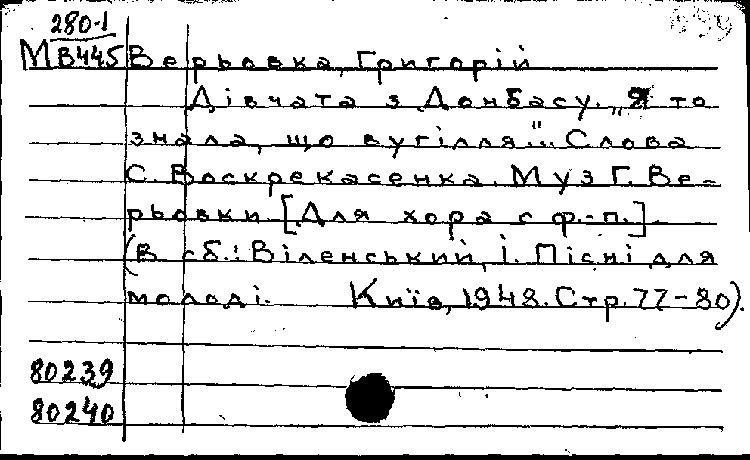 280-1
М В445 Верьовка, Григорій
Дівчата з Донбасу. „Я то
знала, що вугілля..." Слова
С. Воскрекасенка. Муз Г. Ве-
рьовки [Для хора с ф.-п.].
(В сб.: Віленський, І. Пісні для
молоді. Київ, 1948. Стр. 77-80).
80239
80240